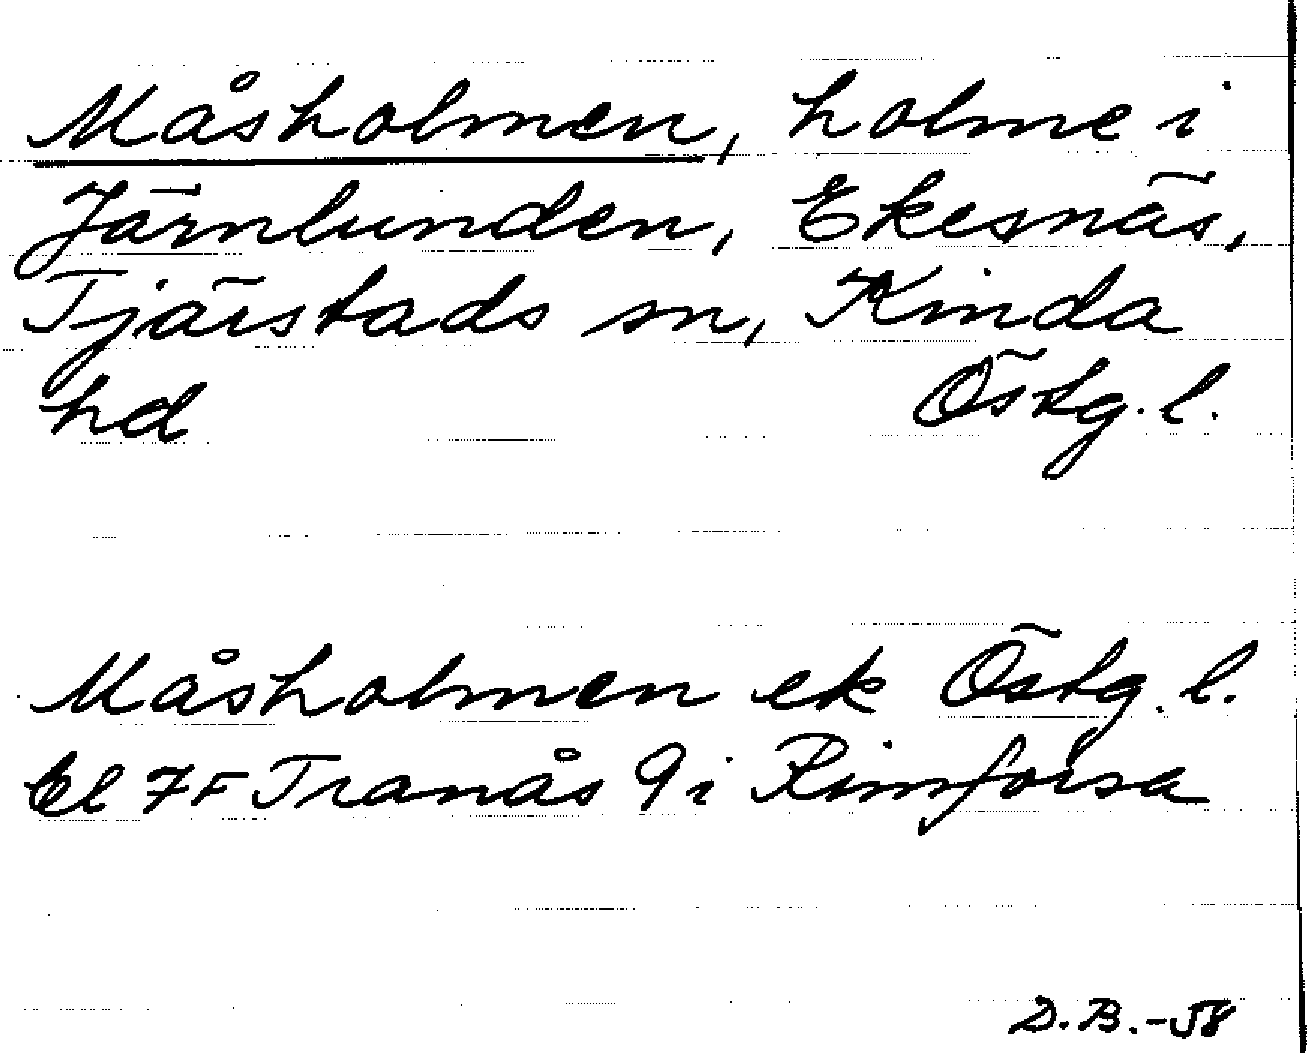 Måsholmen, holme i
Järnlunden, Ekesnäs,
Tjärstads sn, Kinda
hd Östg. l.
Måsholmen ek Östg. l.
Bl 7F Tranås 9i Rimforsa
D.B.-58